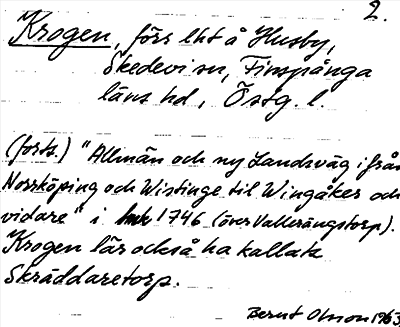 2.
Krogen, förs. lht å Husby,
Skedevi sn, Finspånga
läns hd, Östg. l.
(forts.) "Allmän och ny Landsväg ifrån
Norrköping och Wistinge til Wingåker och
vidare" i 1746 (över Vallerängstorp).
Krogen lär också ha kallats
Skräddaretorp.
Bernt Olsson 1963